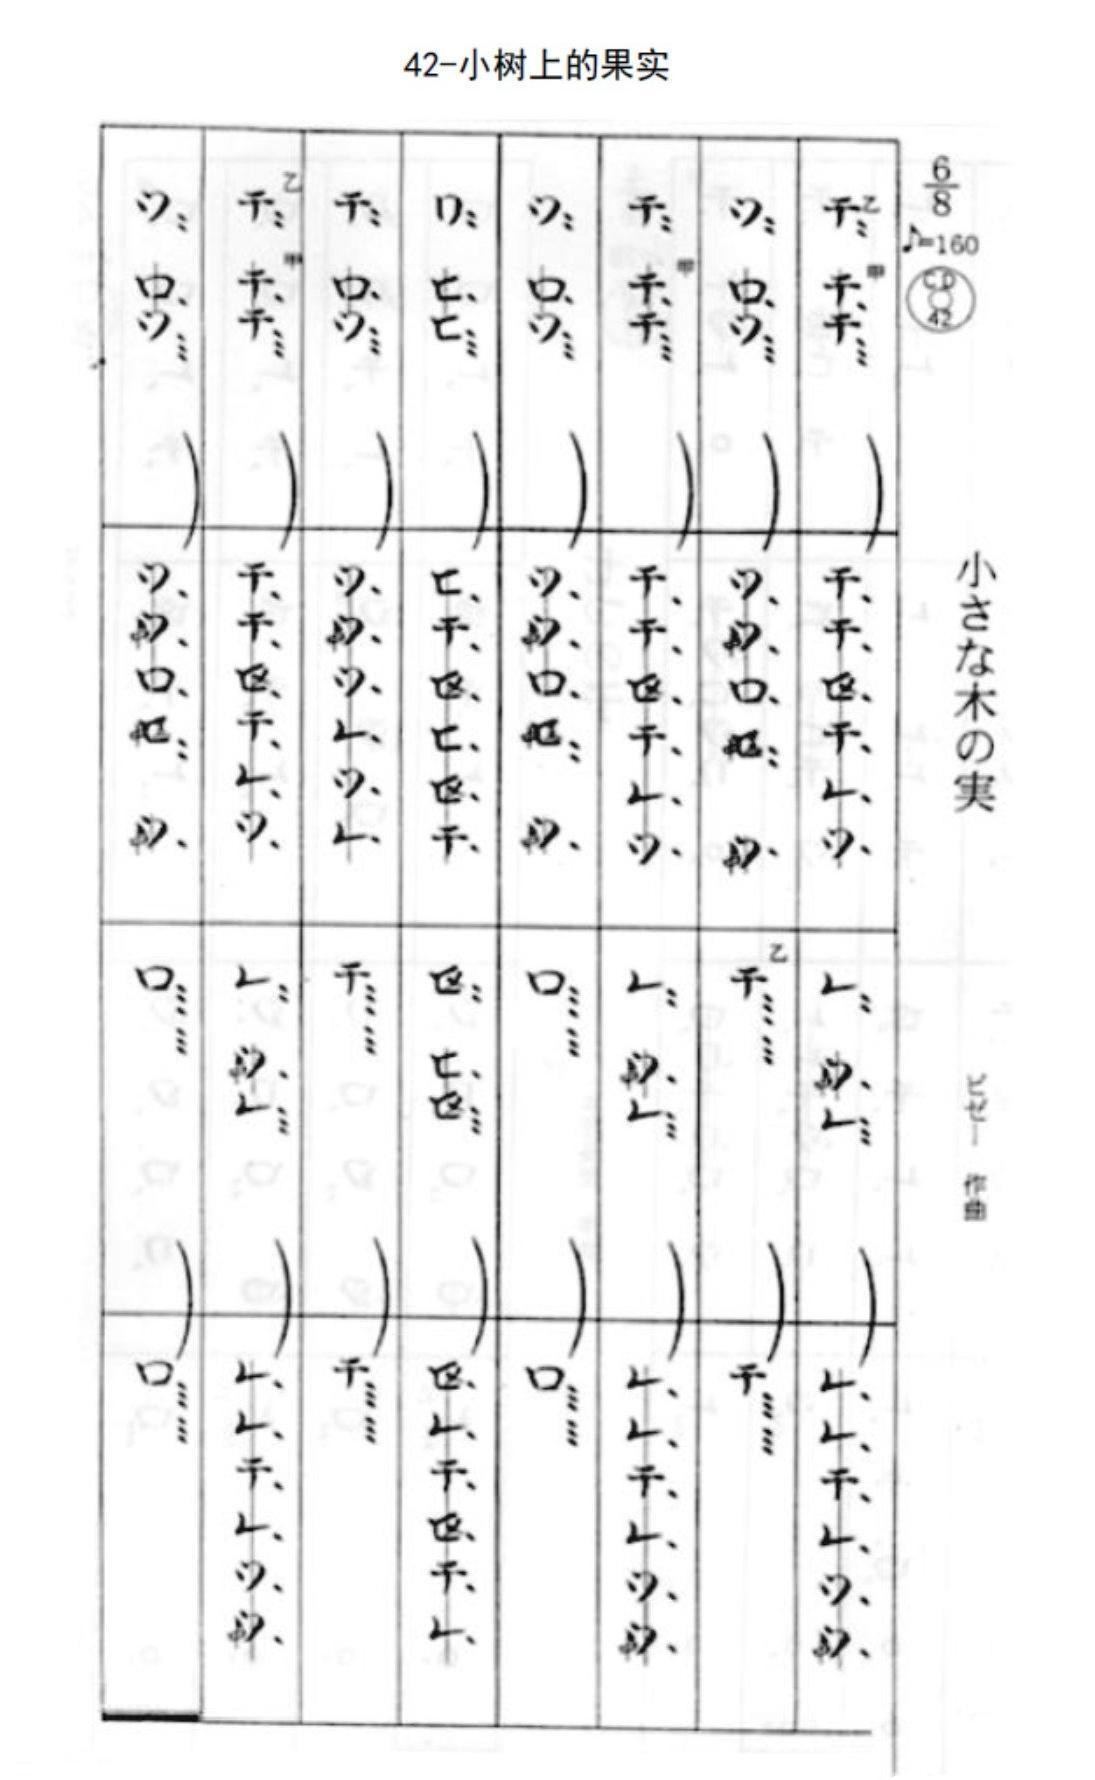 42-小树上的果实
6/8
♪=160
CD 42
小さな木の実
ビゼー 作曲
乙 チ 甲 チ チ チ チ チ レ ツ レ レ レ レ チ レ ツ
ツ ロ ツ ツ ロ 乙 チ チ
チ 甲 チ チ チ チ チ レ ツ レ レ レ レ チ レ ツ
ツ ロ ツ ツ ロ ロ ロ
ヒ ヒ ヒ チ ヒ チ ヒ レ チ チ レ
チ ロ ツ ツ ツ レ ツ レ チ チ
乙 チ 甲 チ チ チ チ チ レ ツ レ レ レ レ チ レ ツ
ツ ロ ツ ツ ロ ロ ロ